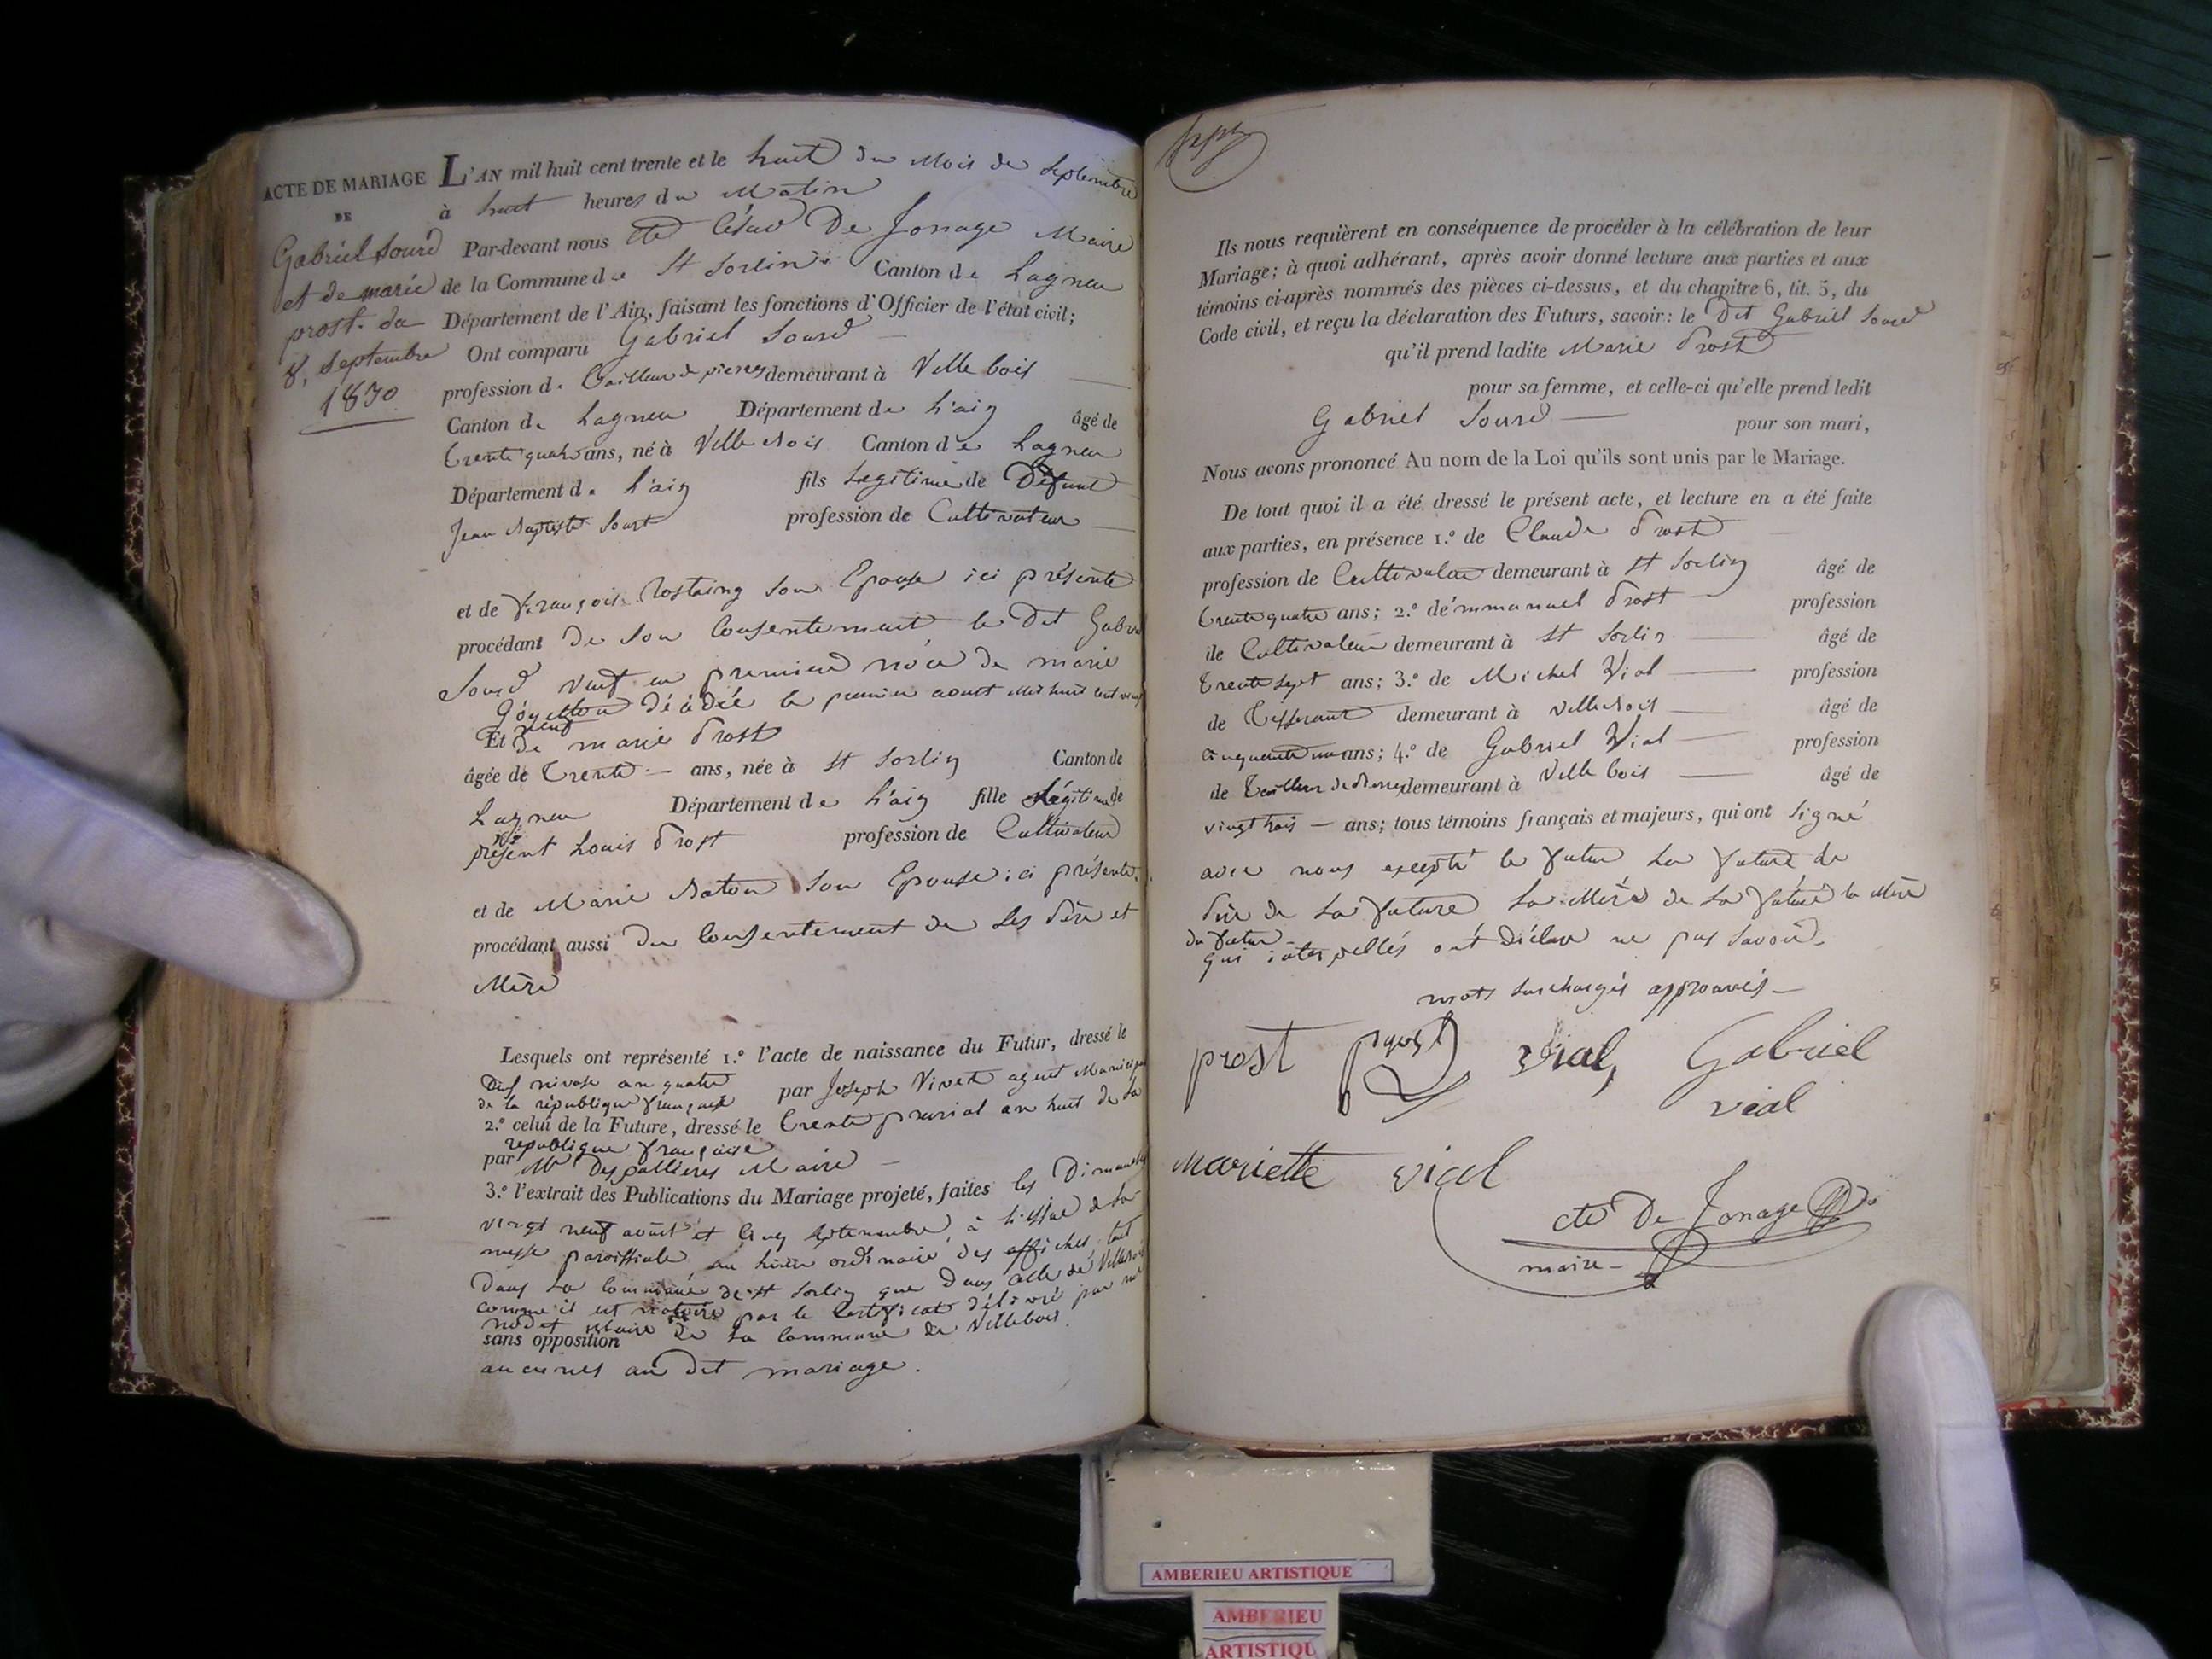 ACTE DE MARIAGE
DE
Gabriel Sourd
et de marie
prost. du
8, Septembre
1830
L'AN mil huit cent trente et le huit du Mois de Septembre
à huit heures du Matin
Par-devant nous cte César De Jonage Maire
de la Commune de St Sorlin Canton de Lagneu
Département de l'Ain, faisant les fonctions d'Officier de l'état civil;
Ont comparu Gabriel Sourd
profession de Tailleur de pierres demeurant à Villebois
Canton de Lagneu Département de L'ain âgé de
trente quatre ans, né à Villebois Canton de Lagneu
Département de L'ain fils Legitime de Défunt
Jean Baptiste Sourd profession de Cultivateur
et de françoise Rostaing son Epouse ici présente
procédant de son Consentement, le Dit Gabriel
Sourd veuf en premiere noce de marie
décédée le premier aoust mil huit cent vingt
neuf
Et de marie Prost
âgée de Trente ans, née à St Sorlin Canton de
Lagneu Département de L'ain fille Légitime de
présent Louis Prost profession de Cultivateur
et de Marie Baton son Epouse ici présente,
procédant aussi du Consentement de Ses Père et
Mère
Lesquels ont représenté 1.º l'acte de naissance du Futur, dressé le
nivose an quatre par Joseph Vivet agent Municipal
de la république française
2.º celui de la Future, dressé le trente prairial an huit de la
republique française
par Mr Despallieres Maire
3.º l'extrait des Publications du Mariage projeté, faites les Dimanches
vingt neuf août et cinq Septembre, à L'issue de la
messe paroissiale, au lieu ordinaire des affiches tant
Dans la Commune de St Sorlin que Dans celle de Villebois
comme il est notoire par le Certificat délivré par
Maire de la Commune de Villebois
sans opposition
aucunes au dit mariage.
Ils nous requièrent en conséquence de procéder à la célébration de leur
Mariage; à quoi adhérant, après avoir donné lecture aux parties et aux
témoins ci-après nommés des pièces ci-dessus, et du chapitre 6, tit. 5, du
Code civil, et reçu la déclaration des Futurs, savoir: le Dit Gabriel Sourd
qu'il prend ladite Marie Prost
pour sa femme, et celle-ci qu'elle prend ledit
Gabriel Sourd pour son mari,
Nous avons prononcé Au nom de la Loi qu'ils sont unis par le Mariage.
De tout quoi il a été dressé le présent acte, et lecture en a été faite
aux parties, en présence 1.º de Claude Prost
profession de Cultivateur demeurant à St Sorlin âgé de
trente quatre ans; 2.º d'émmanuel Prost profession
de Cultivateur demeurant à St Sorlin âgé de
trente sept ans; 3.º de Michel Vial profession
de Tisserant demeurant à Villebois âgé de
cinquante un ans; 4.º de Gabriel Vial profession
de Tailleur de Pierres demeurant à Villebois âgé de
vingt trois ans; tous témoins français et majeurs, qui ont signé
avec nous excepté le futur La future le
Père de La future La Mère de La future la Mère
du futur
qui interpellés ont déclaré ne pas savoir.
mots surchargés approuvés
prost prost Vial, Gabriel
vial
Mariette vial
cte De Jonage
maire
AMBERIEU ARTISTIQUE
AMBERIEU
ARTISTIQU